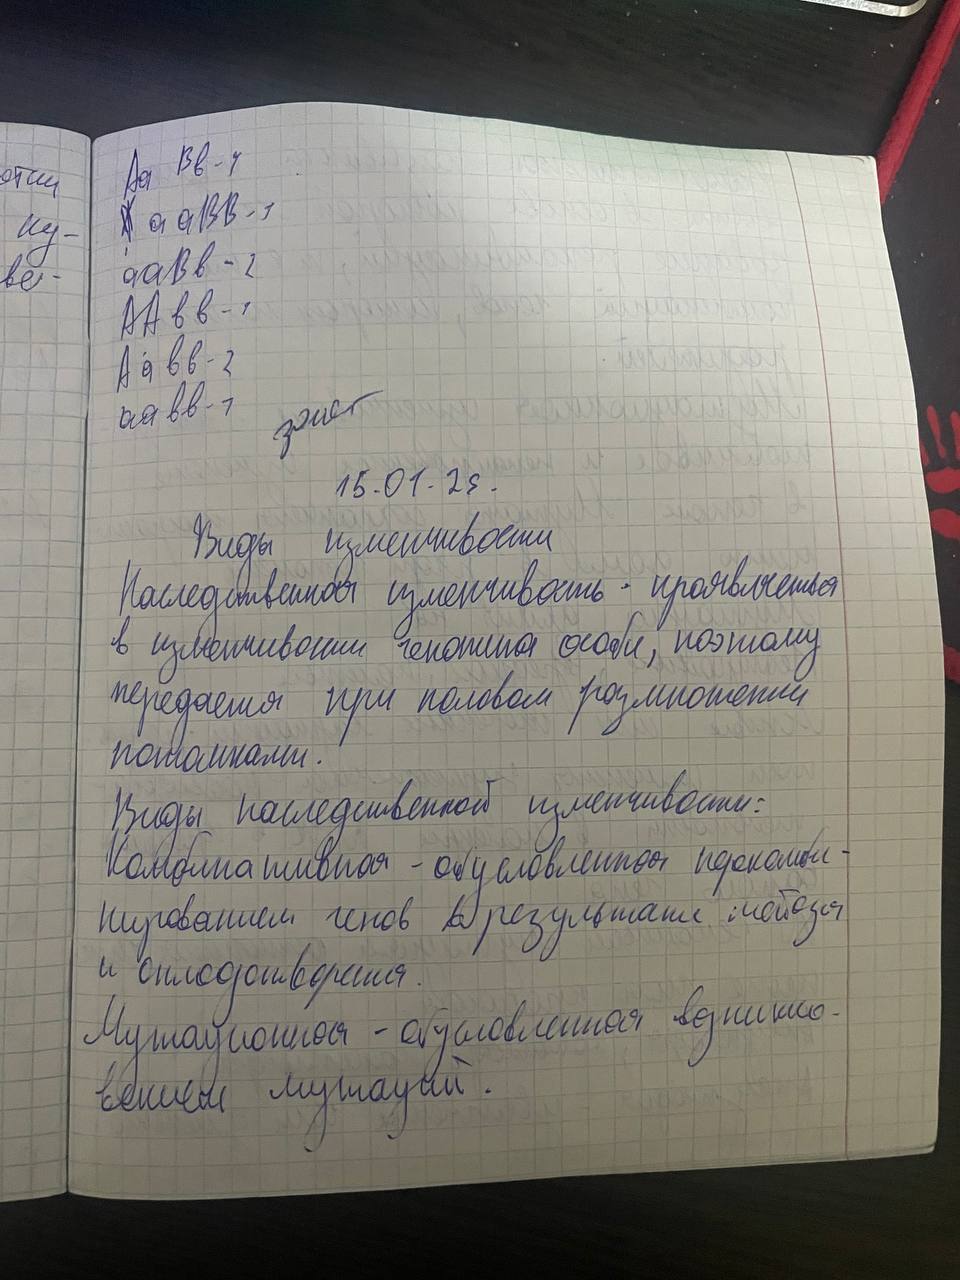 ку-
ве-
Аа Вв - 4
ааВВ - 1
ааВв - 2
ААвв - 1
Аавв - 2
аавв - 1
зачет
15.01.25.
Виды изменчивости
Наследственная изменчивость - проявляеться
в изменчивости генотипа особи, поэтому
передается при половом размножении
потомками.
Виды наследственной изменчивости:
Комбинативная - обусловленная перекомби-
нированием генов в результате мейоза
и оплодотворения.
Мутационная - обусловленная возникно-
вением мутаций.